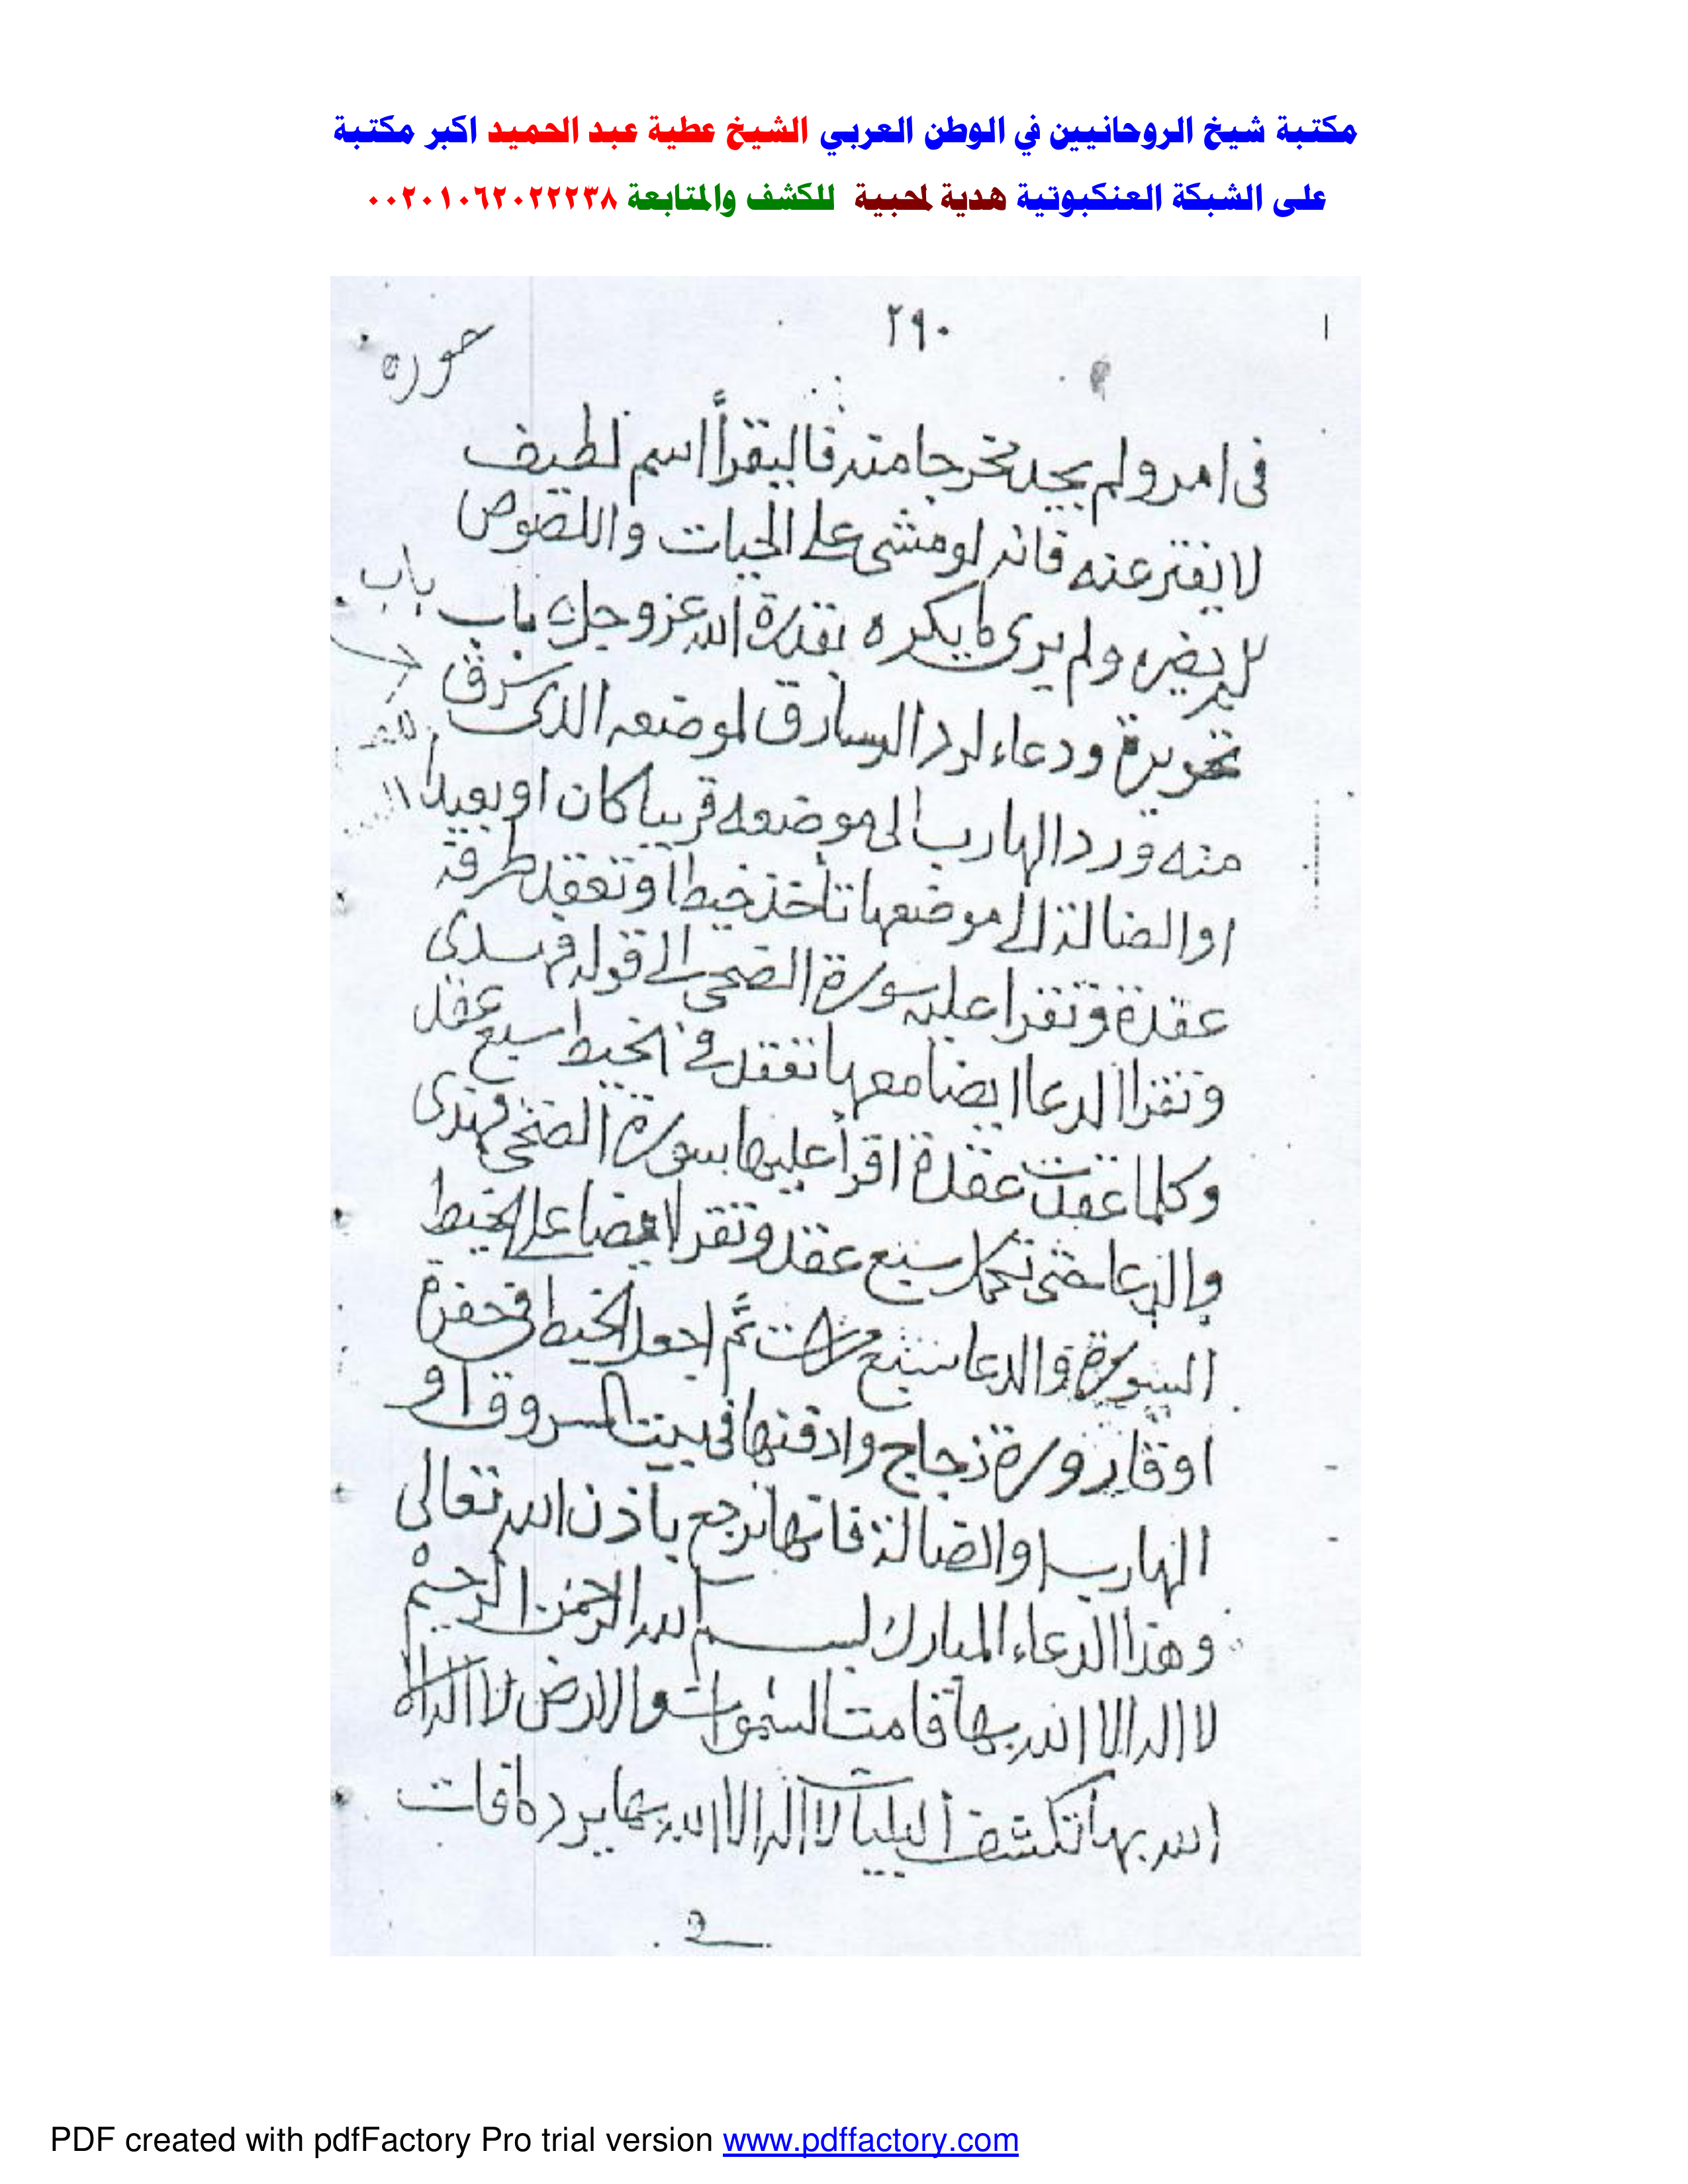 مكتبة شيخ الروحانيين في الوطن العربي الشيخ عطية عبد الحميد اكبر مكتبة
على الشبكة العنكبوتية هدية لمحبية للكشف والمتابعة ٠٠٢٠١٠٦٢٠٢٢٢٣٨
٢٩٠
فى امر ولم يجد مخرجا منه فاليقرأ اسم لطيف
لا يفتر عنه فانه لو مشى على الحيات واللصوص
لم يضره ولم يرى ما يكره بقدرة الله عزوجل باب باب
ودعاء لرد السارق لموضعه الذى سرق
منه ورد الهارب الى موضعه قريبا كان او بعيدا
او الضالة الى موضعها تأخذ خيطا وتعقد طرفة
عقدة وتقرا عليه سورة الضحى الى قوله
وتقرا الدعا ايضا معها تعقد في الخيط سبع عقد
وكلما عقدت عقدة اقرأ عليها سورة الضحى فهدى
والدعا حتى تكمل سبع عقد وتقرا ايضا على الخيط
السورة والدعا سبع مرات ثم اجعل الخيط فى حفرة
او قارورة زجاج وادفنها فى بيت المسروق او
الهارب او الضالة فانها ترجع بأذن الله تعالى
وهذا الدعاء المبارك بسم الله الرحمن الرحيم
لا اله الا الله بها قامت السموات والارض لا اله الا
الله بها تكشف البليات لا اله الا الله بها يرد ما فات
PDF created with pdfFactory Pro trial version www.pdffactory.com